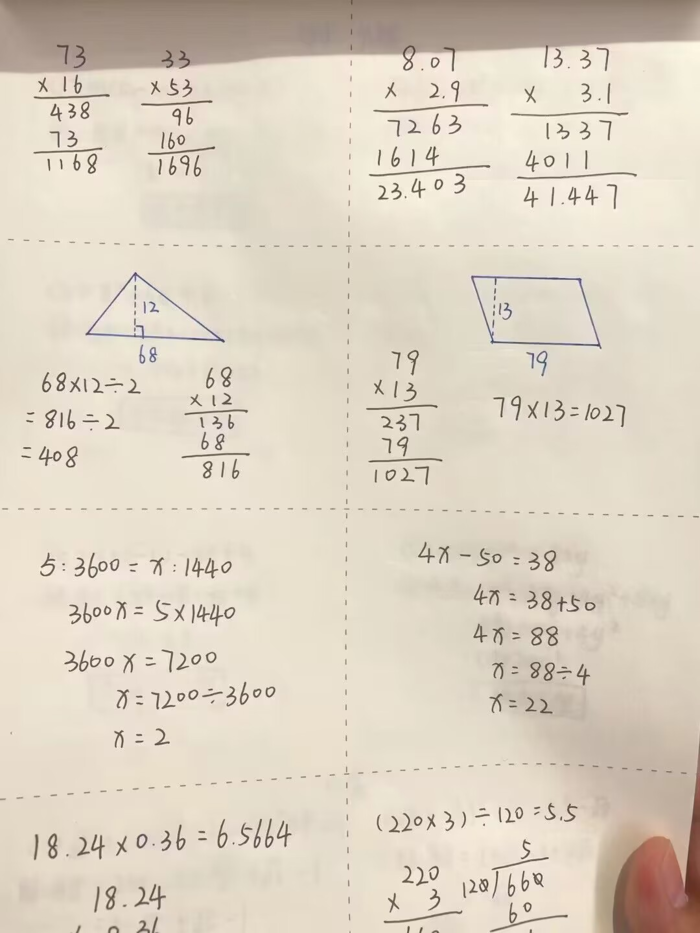 73
× 16
438
73
1168
33
× 53
96
160
1696
8.07
× 2.9
7263
1614
23.403
13.37
× 3.1
1337
4011
41.447
12
68
68×12÷2
= 816÷2
= 408
68
×12
136
68
816
13
79
79
×13
237
79
1027
79×13=1027
5:3600 = x:1440
3600x = 5×1440
3600x = 7200
x = 7200÷3600
x = 2
4x - 50 = 38
4x = 38+50
4x = 88
x = 88÷4
x = 22
18.24×0.36 = 6.5664
18.24
0.36
(220×3)÷120=5.5
220
× 3
5
120)660
60